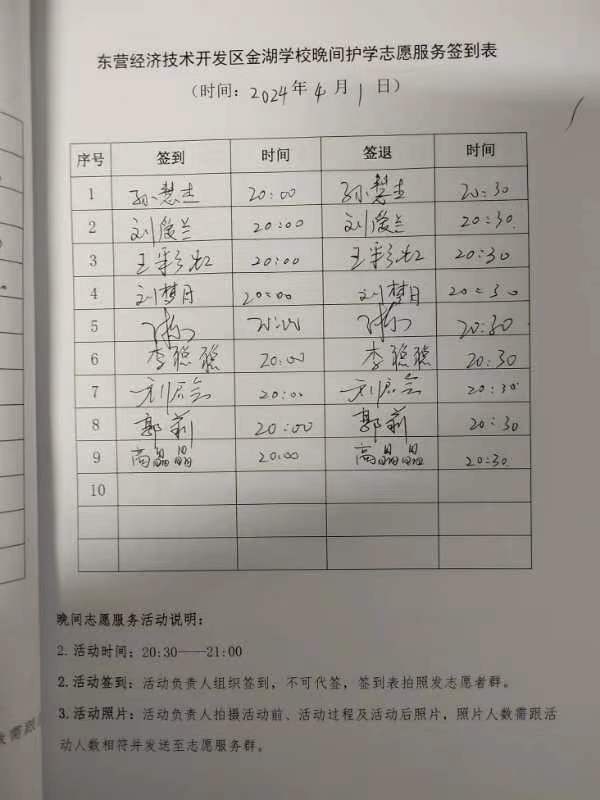 东营经济技术开发区金湖学校晚间护学志愿服务签到表
（时间：2024年4月1日）
序号 签到 时间 签退 时间
1 孙慧杰 20:00 孙慧杰 20:30
2 刘俊兰 20:00 刘俊兰 20:30
3 王彩虹 20:00 王彩虹 20:30
4 刘梦月 20:00 刘梦月 20:30
5 20:00 20:30
6 李聪聪 20:00 李聪聪 20:30
7 20:00 20:30
8 郭莉 20:00 郭莉 20:30
9 高晶晶 20:00 高晶晶 20:30
10
晚间志愿服务活动说明：
2.活动时间：20:30——21:00
2.活动签到：活动负责人组织签到，不可代签，签到表拍照发志愿者群。
3.活动照片：活动负责人拍摄活动前、活动过程及活动后照片，照片人数需跟活
动人数相符并发送至志愿服务群。